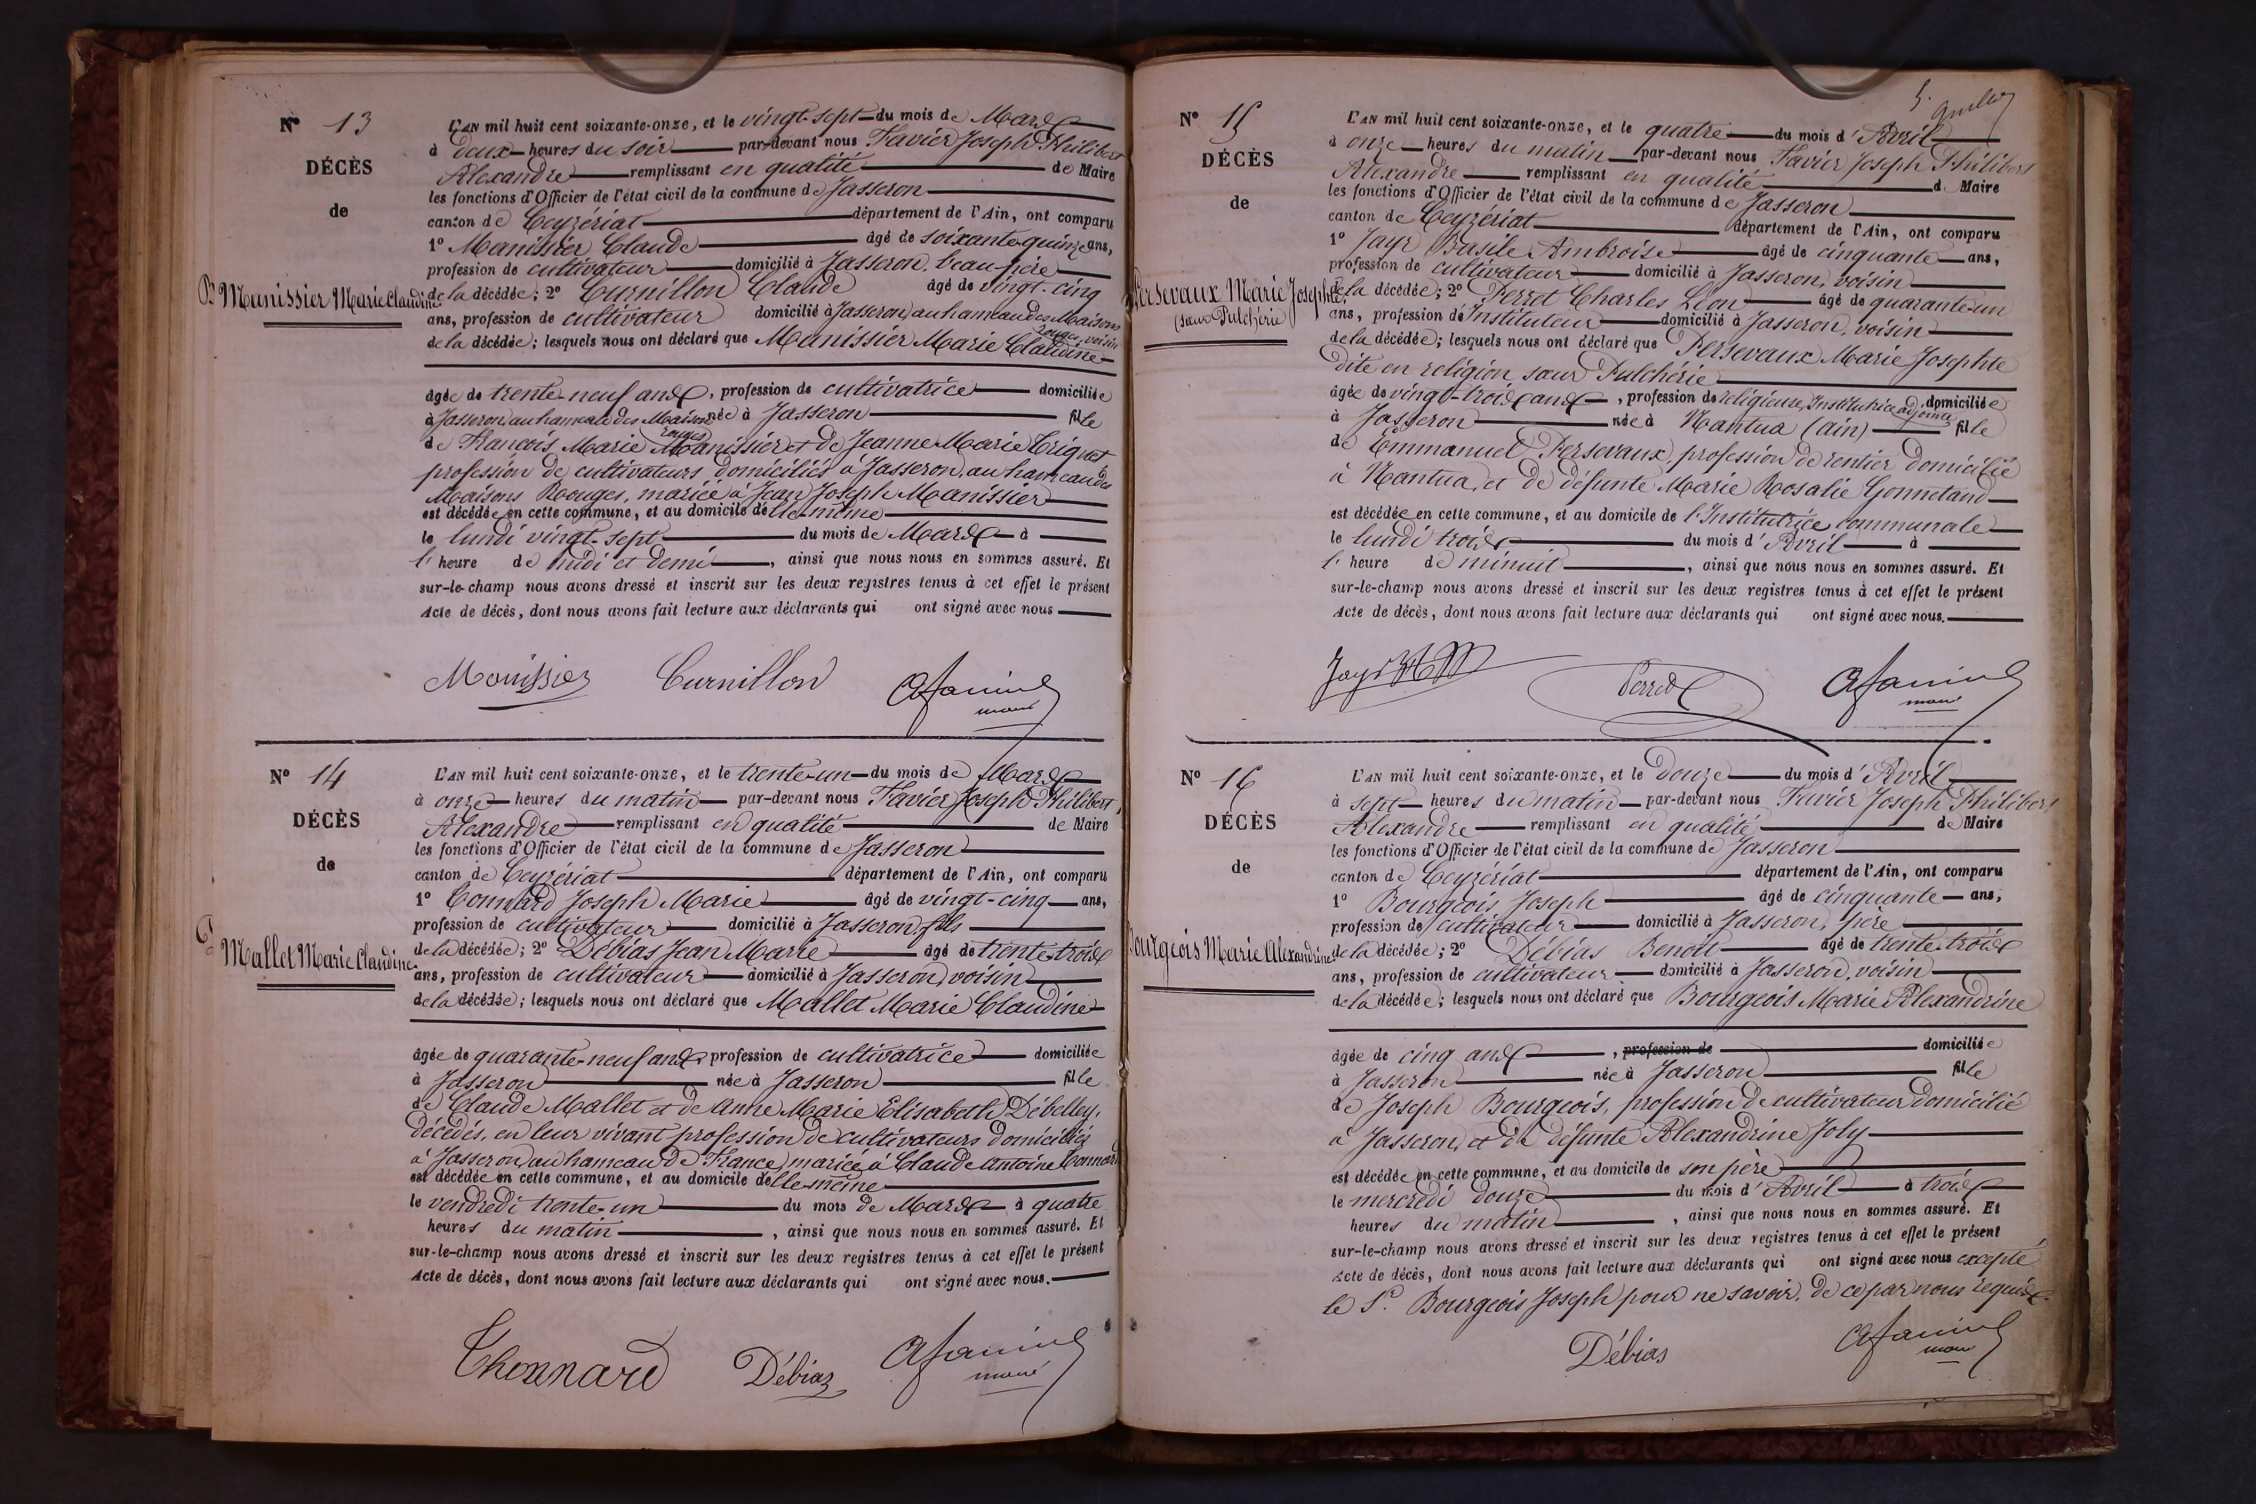 N° 13
DÉCÈS
de
Manissier Marie Claudine
L'AN mil huit cent soixante-onze, et le vingt-sept du mois de Mars
à deux heures du soir par-devant nous Favier Joseph Philibert
Alexandre remplissant en qualité de Maire
les fonctions d'Officier de l'état civil de la commune de Jasseron
canton de Ceyzériat département de l'Ain, ont comparu
1° Manissier Claude âgé de soixante-quinze ans,
profession de cultivateur domicilié à Jasseron, beau-père
de la décédée; 2° Curnillon Claude âgé de vingt-cinq
ans, profession de cultivateur domicilié à Jasseron au hameau des Maisons
rouges, voisin
de la décédée; lesquels nous ont déclaré que Manissier Marie Claudine
âgée de trente-neuf ans, profession de cultivatrice domiciliée
à Jasseron, au hameau des Maisons née à Jasseron fille
rouges
de François Marie Manissier et de Jeanne Marie Triquet
profession de cultivateurs domiciliés à Jasseron, au hameau des
Maisons Rouges, mariée à Jean Joseph Manissier
est décédée en cette commune, et au domicile d'elle-même
le lundi vingt-sept du mois de Mars à
l'heure de midi et demi, ainsi que nous nous en sommes assuré. Et
sur-le-champ nous avons dressé et inscrit sur les deux registres tenus à cet effet le présent
Acte de décès, dont nous avons fait lecture aux déclarants qui ont signé avec nous
Manissier Curnillon
maire
N° 14
DÉCÈS
de
Mallet Marie Claudine
L'AN mil huit cent soixante-onze, et le trente-un du mois de Mars
à onze heures du matin par-devant nous Favier Joseph Philibert,
Alexandre remplissant en qualité de Maire
les fonctions d'Officier de l'état civil de la commune de Jasseron
canton de Ceyzériat département de l'Ain, ont comparu
1° Connard Joseph Marie âgé de vingt-cinq ans,
profession de cultivateur domicilié à Jasseron fils
de la décédée; 2° Débias Jean Marie âgé de trente-trois
ans, profession de cultivateur domicilié à Jasseron, voisin
de la décédée; lesquels nous ont déclaré que Mallet Marie Claudine
âgée de quarante-neuf ans, profession de cultivatrice domiciliée
à Jasseron née à Jasseron fille
de Claude Mallet et de Anne Marie Elisabeth Débelley,
décédés, en leur vivant profession de cultivateurs domiciliés
à Jasseron, au hameau de France, mariée à Claude Antoine Connard
est décédée en cette commune, et au domicile d'elle-même
le vendredi trente-un du mois de Mars à quatre
heures du matin, ainsi que nous nous en sommes assuré. Et
sur-le-champ nous avons dressé et inscrit sur les deux registres tenus à cet effet le présent
Acte de décès, dont nous avons fait lecture aux déclarants qui ont signé avec nous.
Thonnard Débias
maire
5.
N° 15
DÉCÈS
de
Persevaux Marie Josephte,
(sœur Pulchérie)
L'AN mil huit cent soixante-onze, et le quatre du mois d'Avril
à onze heures du matin par-devant nous Favier Joseph Philibert
Alexandre remplissant en qualité de Maire
les fonctions d'Officier de l'état civil de la commune de Jasseron
canton de Ceyzériat département de l'Ain, ont comparu
1° Jayr Basile Ambroise âgé de cinquante ans,
profession de cultivateur domicilié à Jasseron, voisin
de la décédée; 2° Perret Charles Léon âgé de quarante-un
ans, profession d'Instituteur domicilié à Jasseron, voisin
de la décédée; lesquels nous ont déclaré que Persevaux Marie Josephte
dite en religion sœur Pulchérie
âgée de vingt-trois ans, profession de religieuse, Institutrice adjointe domiciliée
à Jasseron née à Nantua (ain) fille
de Emmanuel Persevaux, profession de rentier domicilié
à Nantua, et de défunte Marie Rosalie Gonnetand
est décédée en cette commune, et au domicile de l'Institutrice communale
le lundi trois du mois d'Avril à
l'heure de minuit, ainsi que nous nous en sommes assuré. Et
sur-le-champ nous avons dressé et inscrit sur les deux registres tenus à cet effet le présent
Acte de décès, dont nous avons fait lecture aux déclarants qui ont signé avec nous.
Jayr Perret
maire
N° 16
DÉCÈS
de
Bourgeois Marie Alexandrine
L'AN mil huit cent soixante-onze, et le douze du mois d'Avril
à sept heures du matin par-devant nous Favier Joseph Philibert
Alexandre remplissant en qualité de Maire
les fonctions d'Officier de l'état civil de la commune de Jasseron
canton de Ceyzériat département de l'Ain, ont comparu
1° Bourgeois Joseph âgé de cinquante ans,
profession de cultivateur domicilié à Jasseron, père
de la décédée; 2° Débias Benoit âgé de trente-trois
ans, profession de cultivateur domicilié à Jasseron, voisin
de la décédée; lesquels nous ont déclaré que Bourgeois Marie Alexandrine
âgée de cinq ans, profession de domiciliée
à Jasseron née à Jasseron fille
de Joseph Bourgeois, profession de cultivateur domicilié
à Jasseron, et de défunte Alexandrine Joly
est décédée en cette commune, et au domicile de son père
le mercredi douze du mois d'Avril à trois
heures du matin, ainsi que nous nous en sommes assuré. Et
sur-le-champ nous avons dressé et inscrit sur les deux registres tenus à cet effet le présent
Acte de décès, dont nous avons fait lecture aux déclarants qui ont signé avec nous excepté
le Sr. Bourgeois Joseph pour ne savoir, de ce par nous requis.
Débias
maire